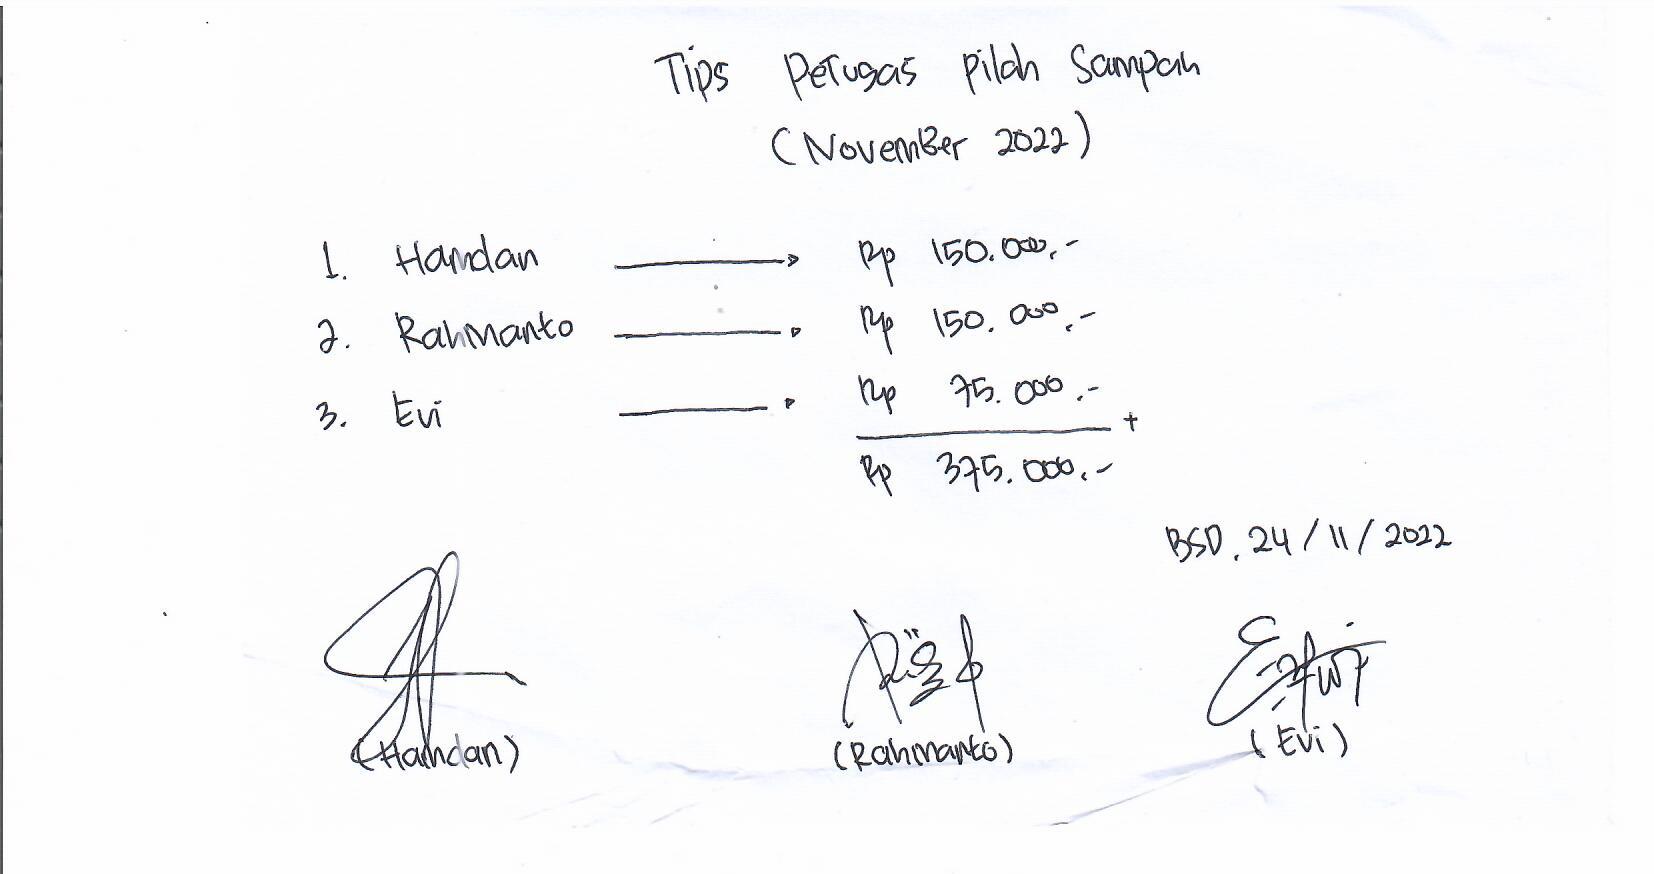 Tips Petugas Pilah Sampah
(November 2022)
1. Hamdan → Rp 150.000.-
2. Rahmanto → Rp 150.000.-
3. Evi → Rp 75.000.-
+
Rp 375.000.-
BSD, 24/11/2022
(Hamdan) (Rahmanto) (Evi)